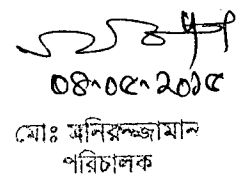 ০৪-০৫-২০১৫
মোঃ মনিরুজ্জামান
পরিচালক